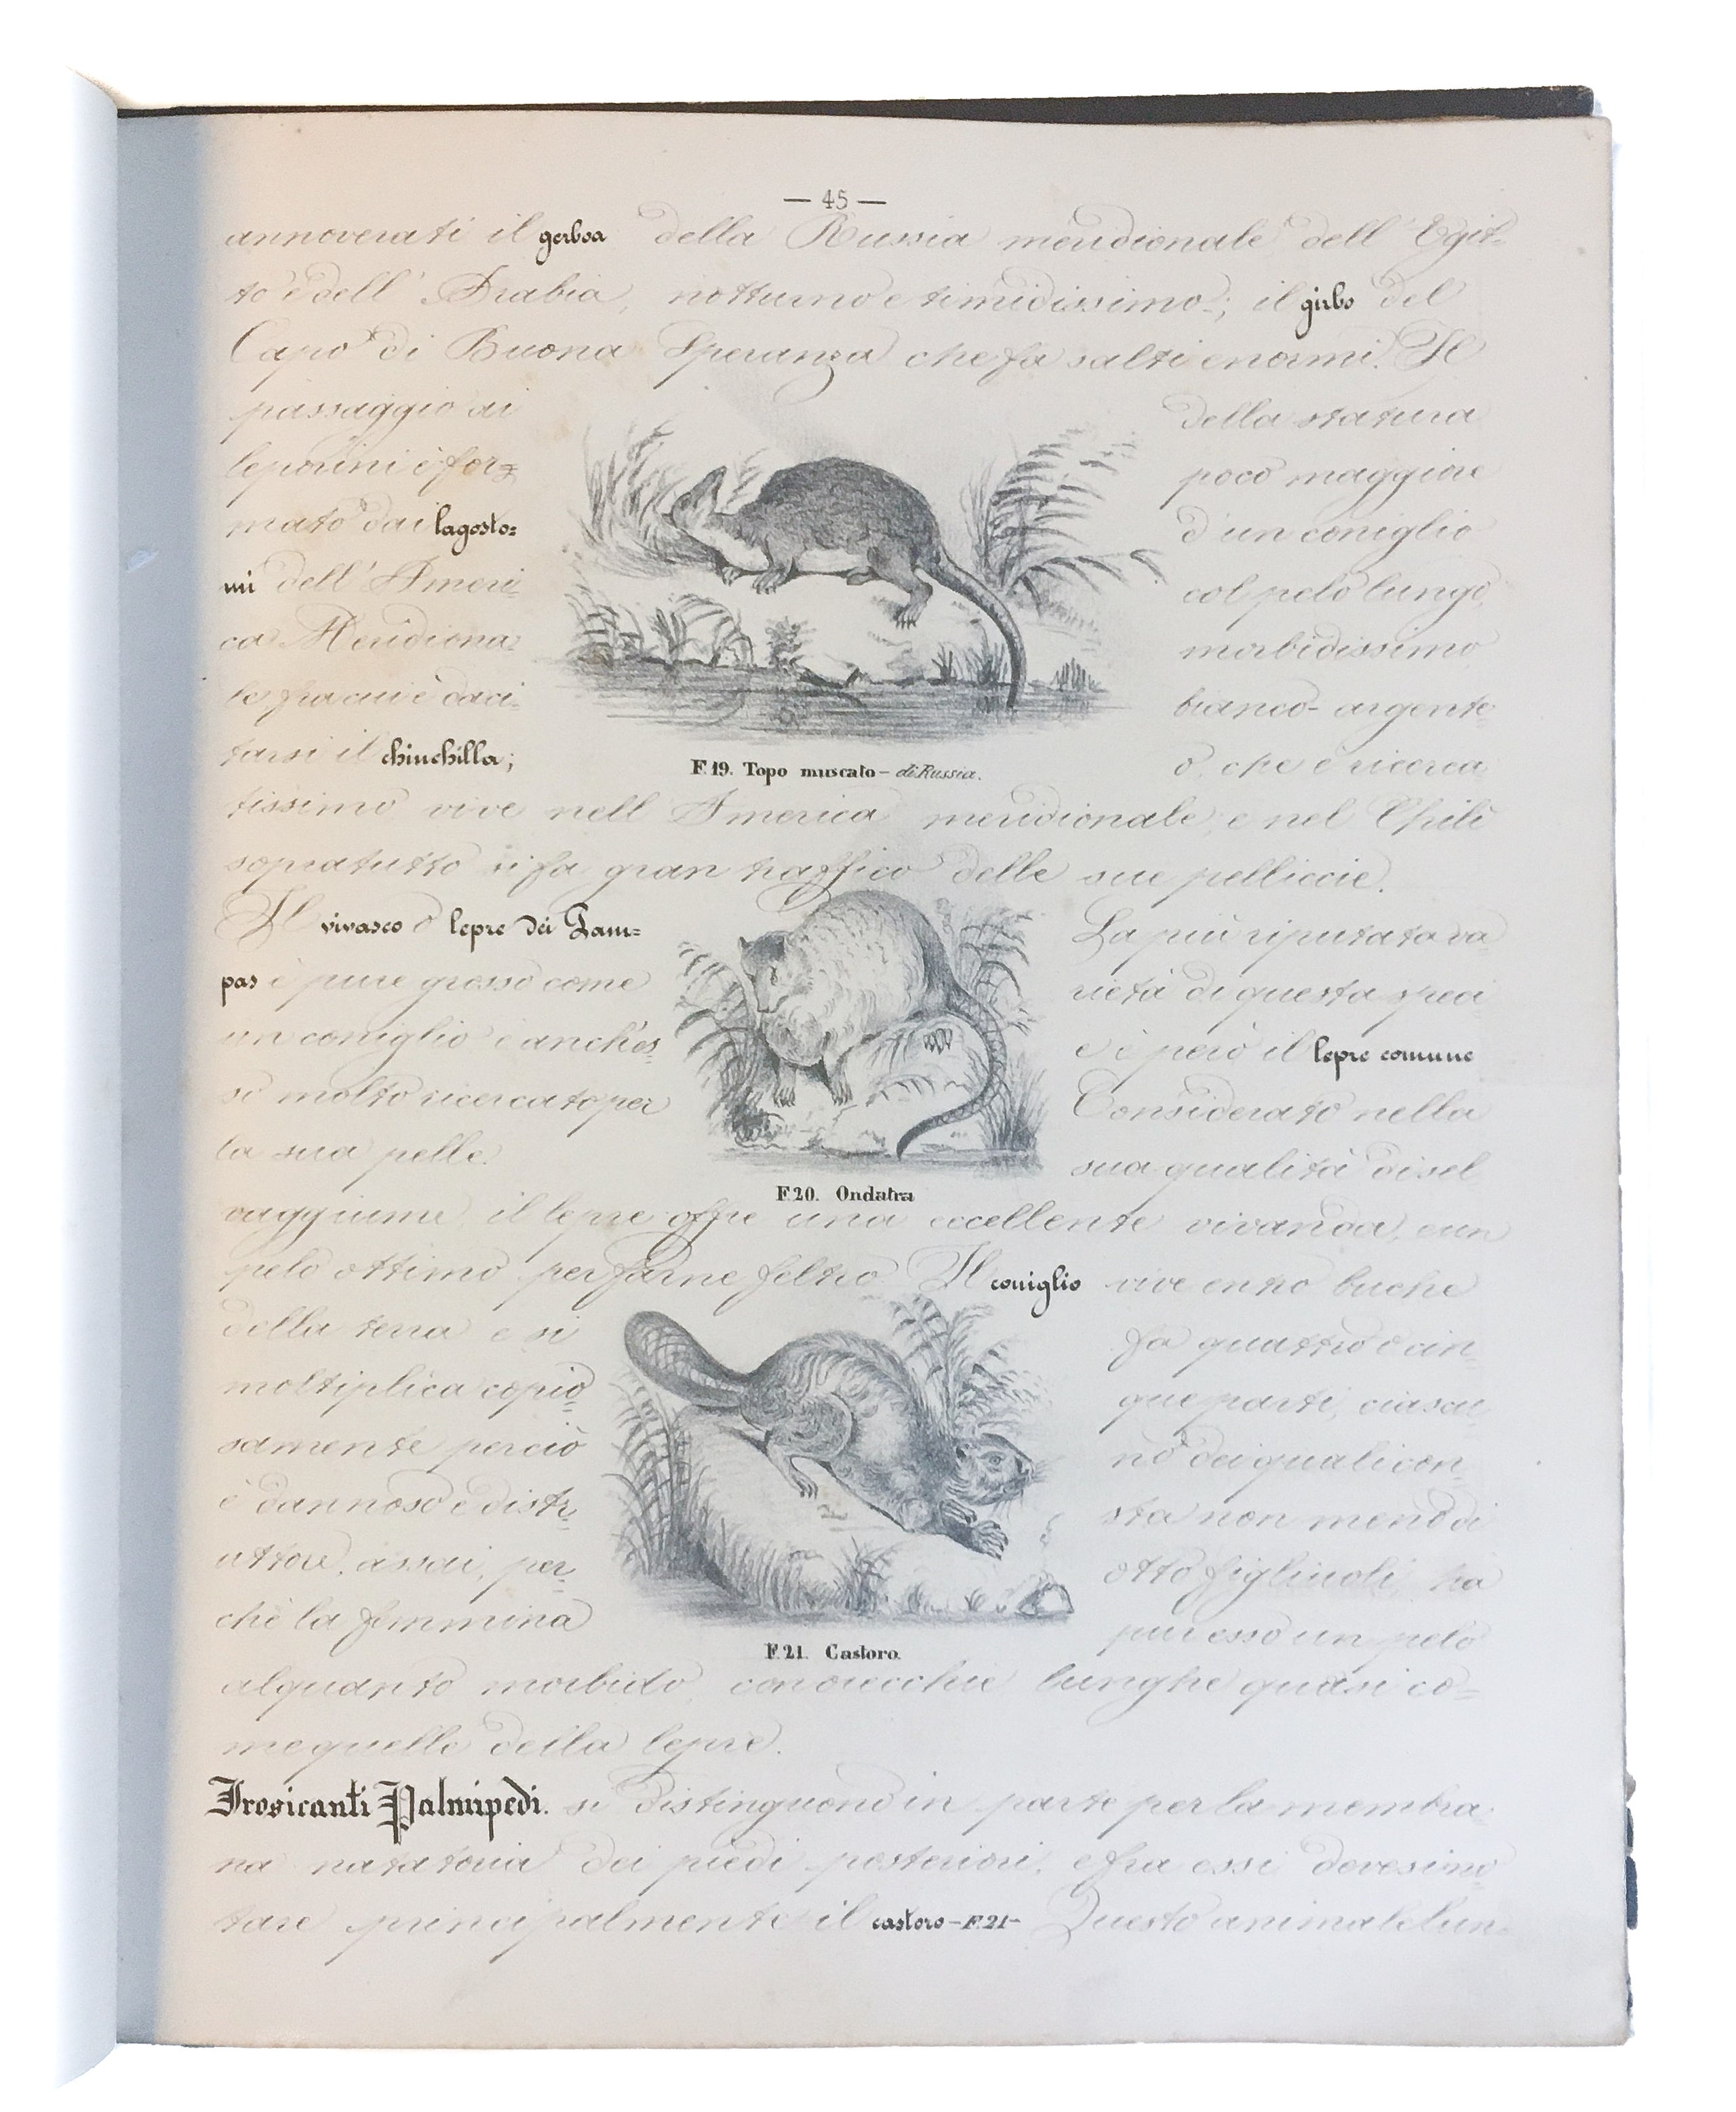 — 45 —
annoverati il gerboa della Russia meridionale dell' Egit-
to e dell' Arabia, notturno e timidissimo; il girbo del
Capo di Buona Speranza che fa salti enormi. Il
passaggio ai
leporini è for=
mato dai lagosto=
mi dell' Ameri-
ca Meridiona-
le fra cui è daci-
tarsi il chinchilla;
della statura
poco maggiore
d'un coniglio
col pelo lungo,
morbidissimo
bianco-argente-
o, che è ricerca-
F.19. Topo muscato – di Russia.
tissimo vive nell America meridionale, e nel Chilì
sopratutto si fa gran traffico delle sue pelliccie.
Il vivasco o lepre dei Pam=
pas è pure grosso come
un coniglio è anch'es-
so molto ricercato per
la sua pelle.
La più riputata va-
rietà di questa speci-
e è però il lepre comune
Considerato nella
sua qualità di sel
F.20. Ondatra
vaggiume, il lepre offre una eccellente vivanda, e un
pelo ottimo per farne feltro. Il coniglio vive entro buche
della terra e si
moltiplica copio-
samente perciò
è dannoso e distr-
uttore assai, per-
chè la femmina
fa quattro o cin-
que parti, ciascu-
no dei quali con-
sta non meno di
otto figliuoli, ha
pur esso un pelo
F.21. Castoro.
alquanto morbido, con orecchie lunghe quasi co=
me quelle della lepre.
Frosicanti Palmipedi. si distinguono in parte per la membra-
na natatoria dei piedi posteriori, e fra essi devesi no-
tare principalmente il castoro – F.21 – Questo animale lun-